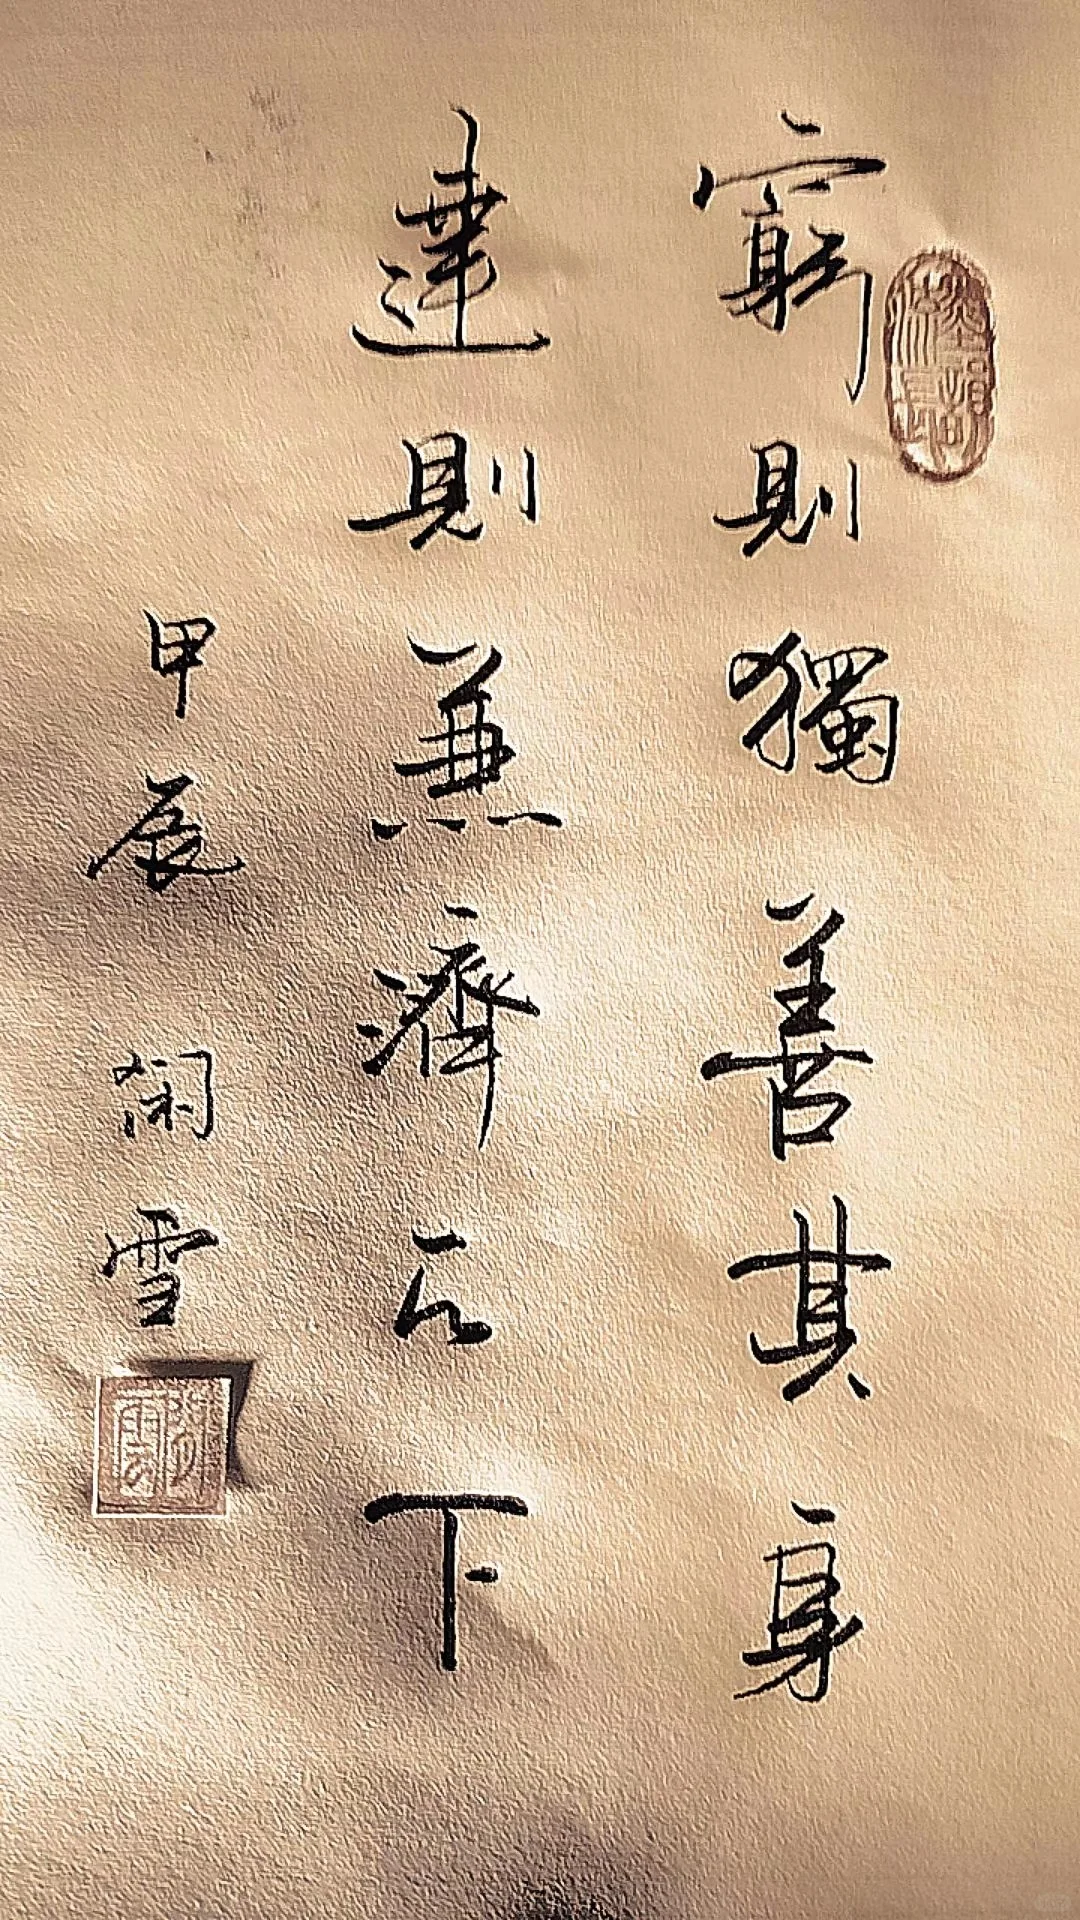 窮則獨善其身
達則兼濟天下
甲辰 闲雪